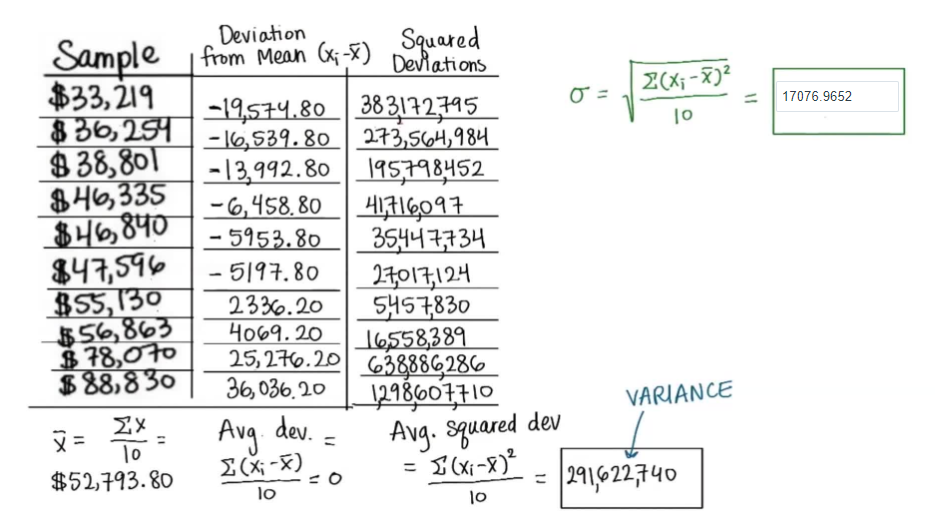 Sample Deviation from Mean (xᵢ-x̄) Squared Deviations
$33,219 -19,574.80 383,172,795
$36,254 -16,539.80 273,564,984
$38,801 -13,992.80 195,798,452
$46,335 -6,458.80 41,716,097
$46,840 -5953.80 35,447,734
$47,596 -5197.80 27,017,124
$55,130 2336.20 5,457,830
$56,863 4069.20 16,558,389
$78,070 25,276.20 638,886,286
$88,830 36,036.20 1,298,607,710
x̄ = Σx/10 =
$52,793.80
Avg. dev. =
Σ(xᵢ-x̄)/10 = 0
Avg. squared dev
= Σ(xᵢ-x̄)²/10 = 291,622,740
VARIANCE
σ = √(Σ(xᵢ-x̄)²/10) = 17076.9652